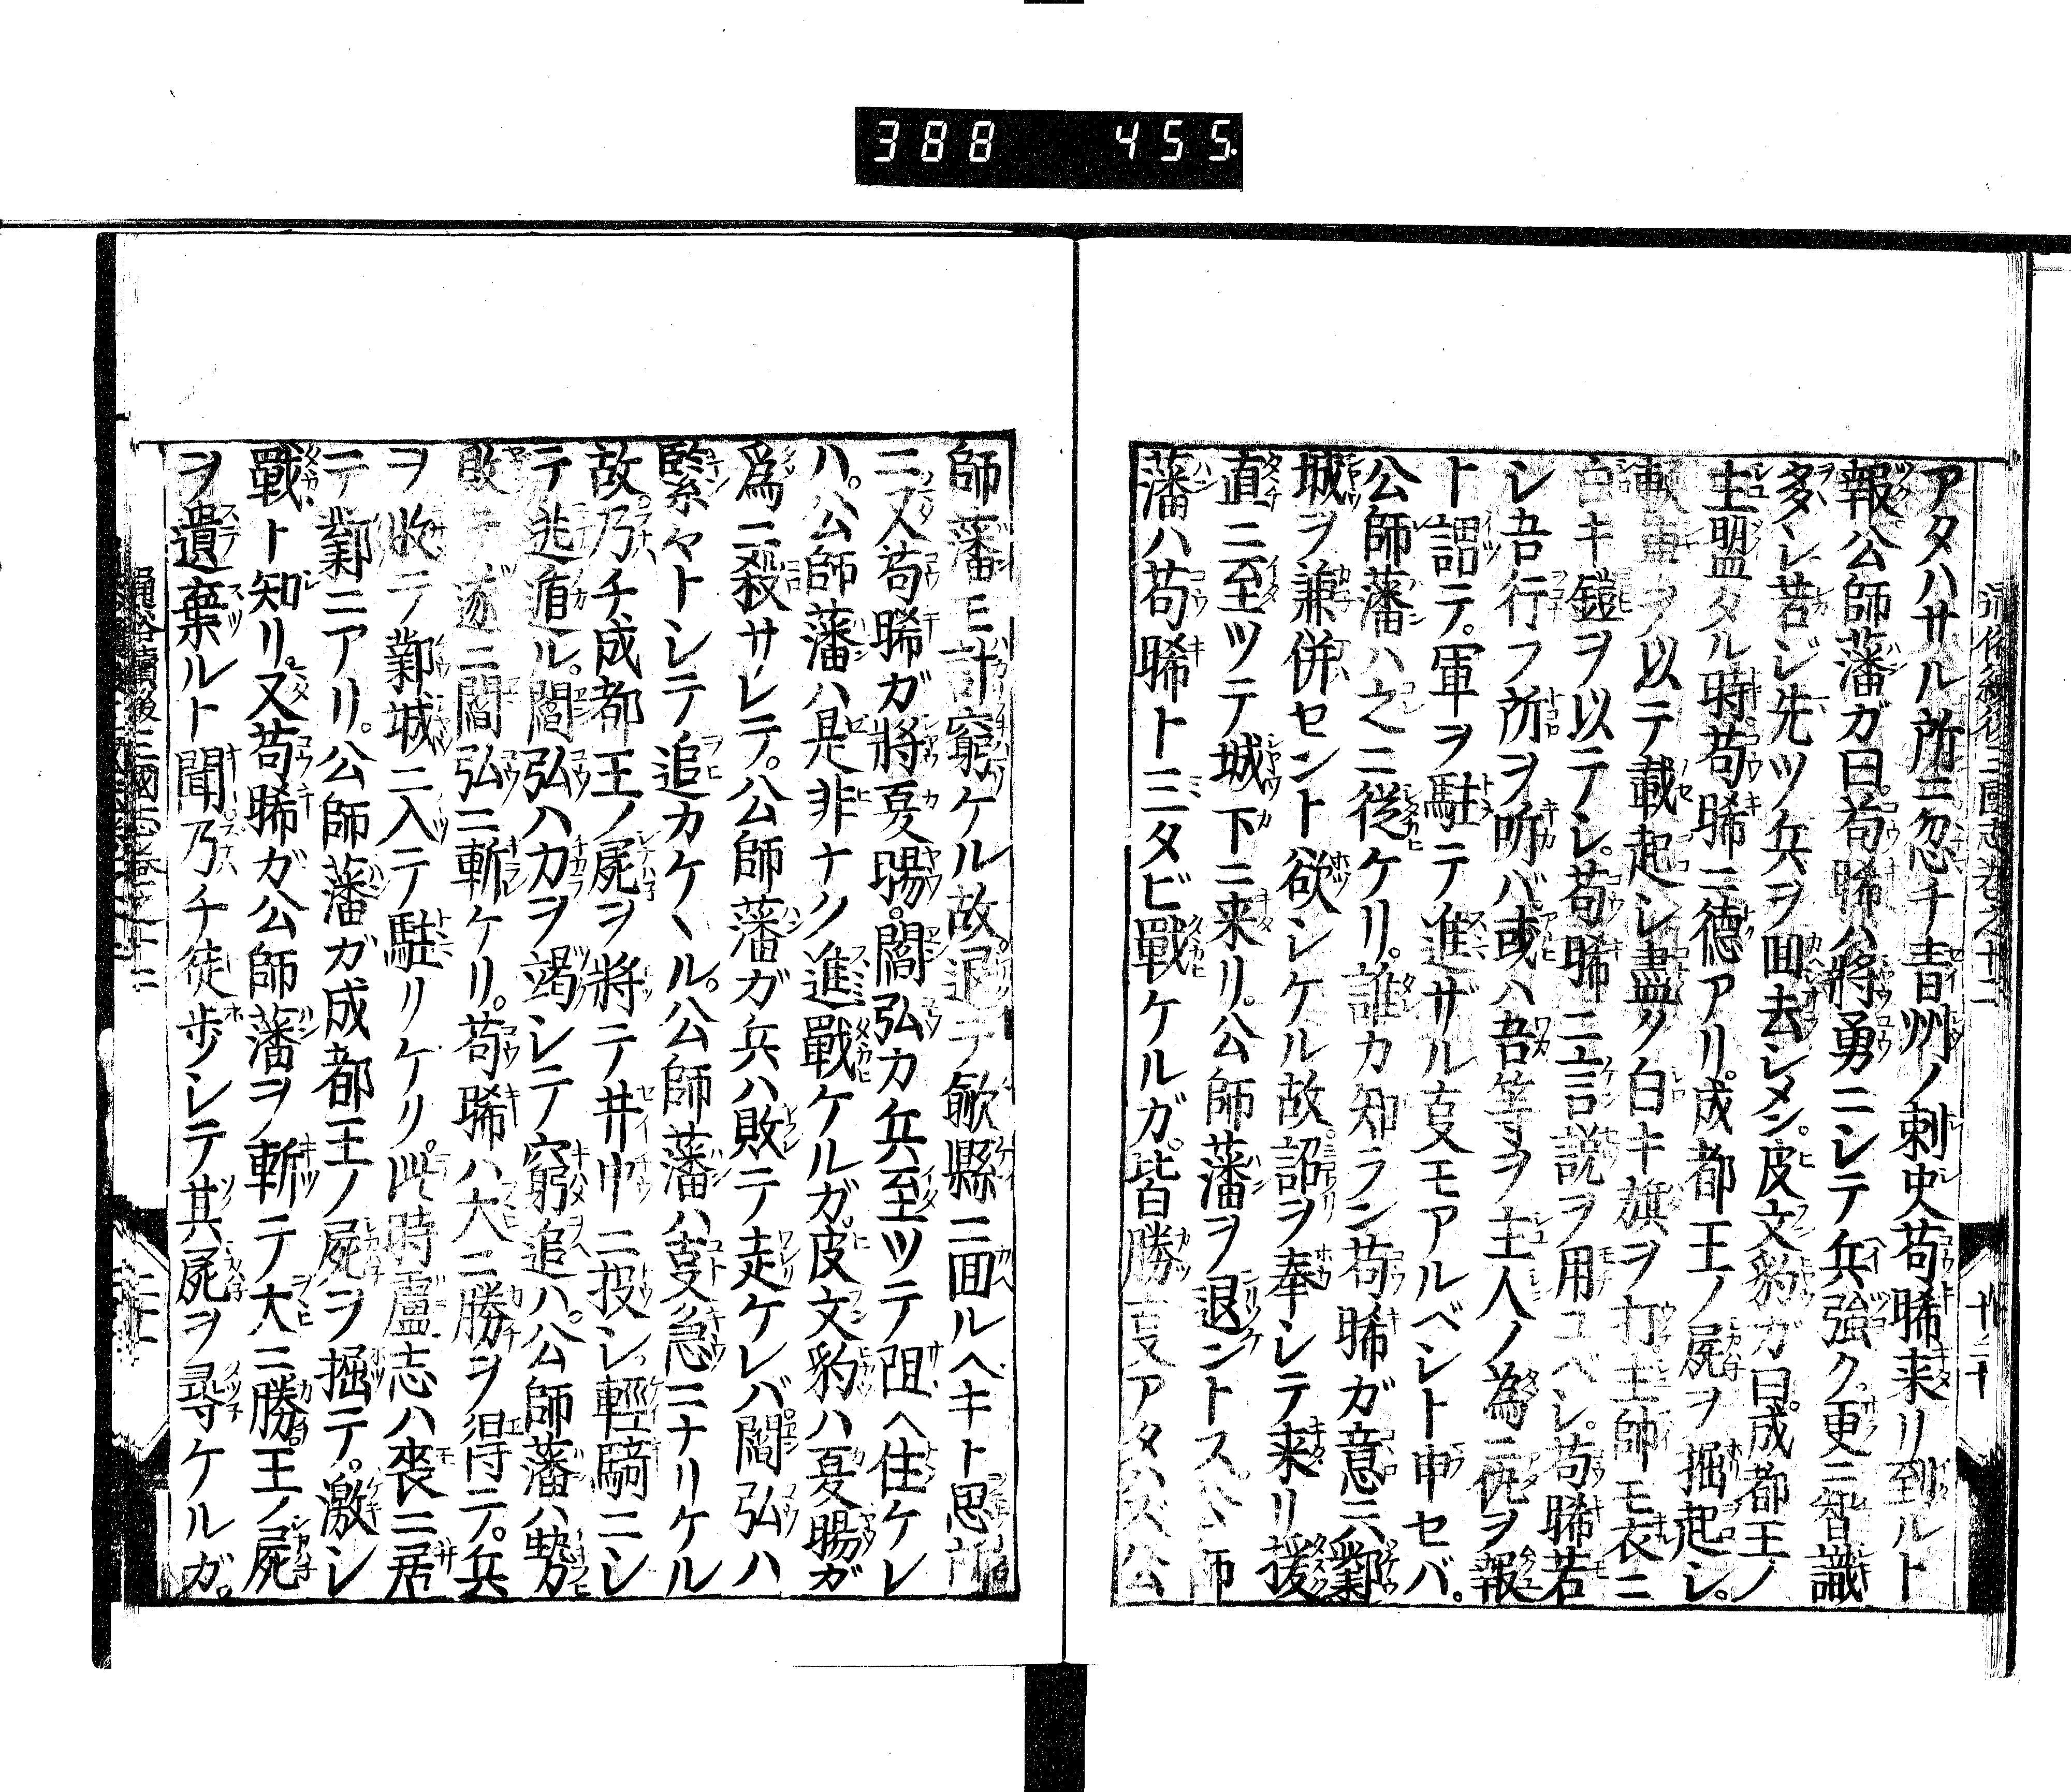 388 455
アタハサル所ニ忽チ青州ノ刺史苟晞来リ到ルト
報公師藩ガ曰苟晞ハ將勇ニシテ兵強ク更ニ智識
多シ若ジ先ツ兵ヲ囬去シメン皮文豹ガ曰成都王ノ
主盟タル時苟晞ニ德アリ成都王ノ屍ヲ掘起シ
車ヲ以テ載起シ盡ク白キ旗ヲ打主師モ衣ニ
白キ鎧ヲ以テシ苟晞ニ言説ヲ用ユベシ苟晞若
シ吾行フ所ヲ听バ或ハ吾等ヲ主人ノ為ニ仇ヲ報
ト謂テ軍ヲ駐テ進ザル叓モアルベシト申セバ
公師藩ハ之ニ從ケリ誰カ知ラン苟晞ガ意ニハ鄴
城ヲ兼併セント欲シケル故詔ヲ奉シテ来リ援
直ニ至ツテ城下ニ来リ公師藩ヲ退ントス公師
藩ハ苟晞ト三タビ戰ケルガ皆勝叓アタハズ公
師藩モ計窮ケル故退テ歙縣ニ囬ルヘキト思所
ニ又苟晞ガ將夏暘閻弘カ兵至ツテ阻ヘ住ケレ
ハ公師藩ハ是非ナク進戰ケルガ皮文豹ハ夏暘ガ
爲ニ殺サレテ公師藩ガ兵ハ敗テ走ケレバ閻弘ハ
緊々トシテ追カケヽル公師藩ハ叓急ニナリケル
故乃チ成都王ノ屍ヲ將テ井中ニ投シ輕騎ニシ
テ逃遁ル閻弘ハ力ヲ竭シテ窮追ハ公師藩ハ勢
敗テ遂ニ閻弘ニ斬ケリ苟晞ハ大ニ勝ヲ得テ兵
ヲ收テ鄴城ニ入テ駐リケリ此時盧志ハ喪ニ居
テ鄴ニアリ公師藩ガ成都王ノ屍ヲ掘テ激シ
戰ト知リ又苟晞ガ公師藩ヲ斬テ大ニ勝王ノ屍
ヲ遺棄ルト聞乃チ徒歩シテ其屍ヲ尋ケルガ
通俗續後三國志卷之十二